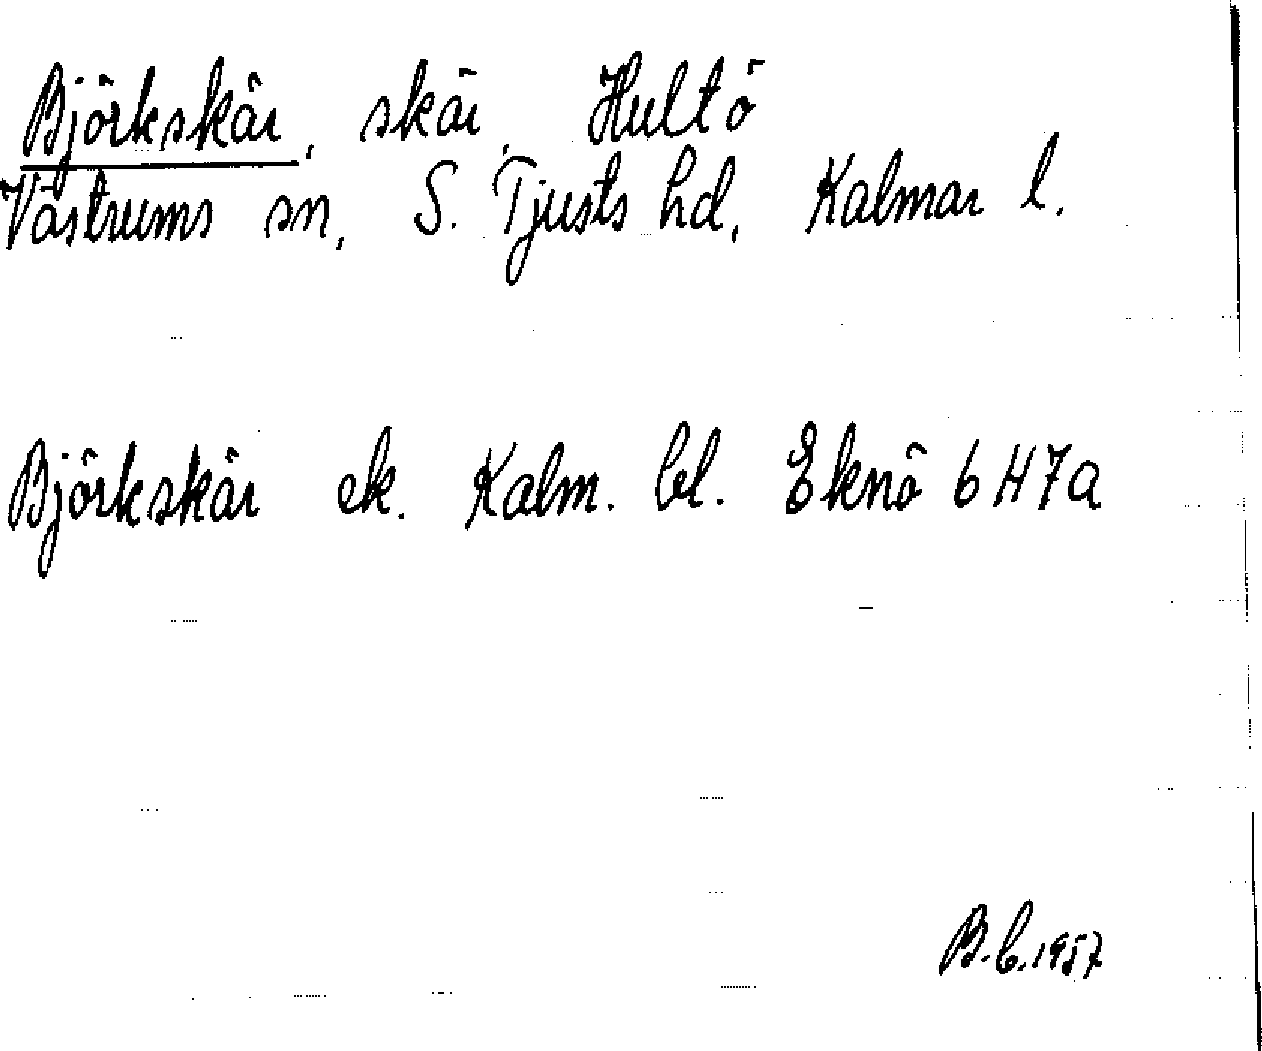 Björkskär, skär, Hultö
Västrums sn, S. Tjusts hd, Kalmar l.
Björkskär ek. Kalm. bl. Eknö 6H7a
B.b.1957